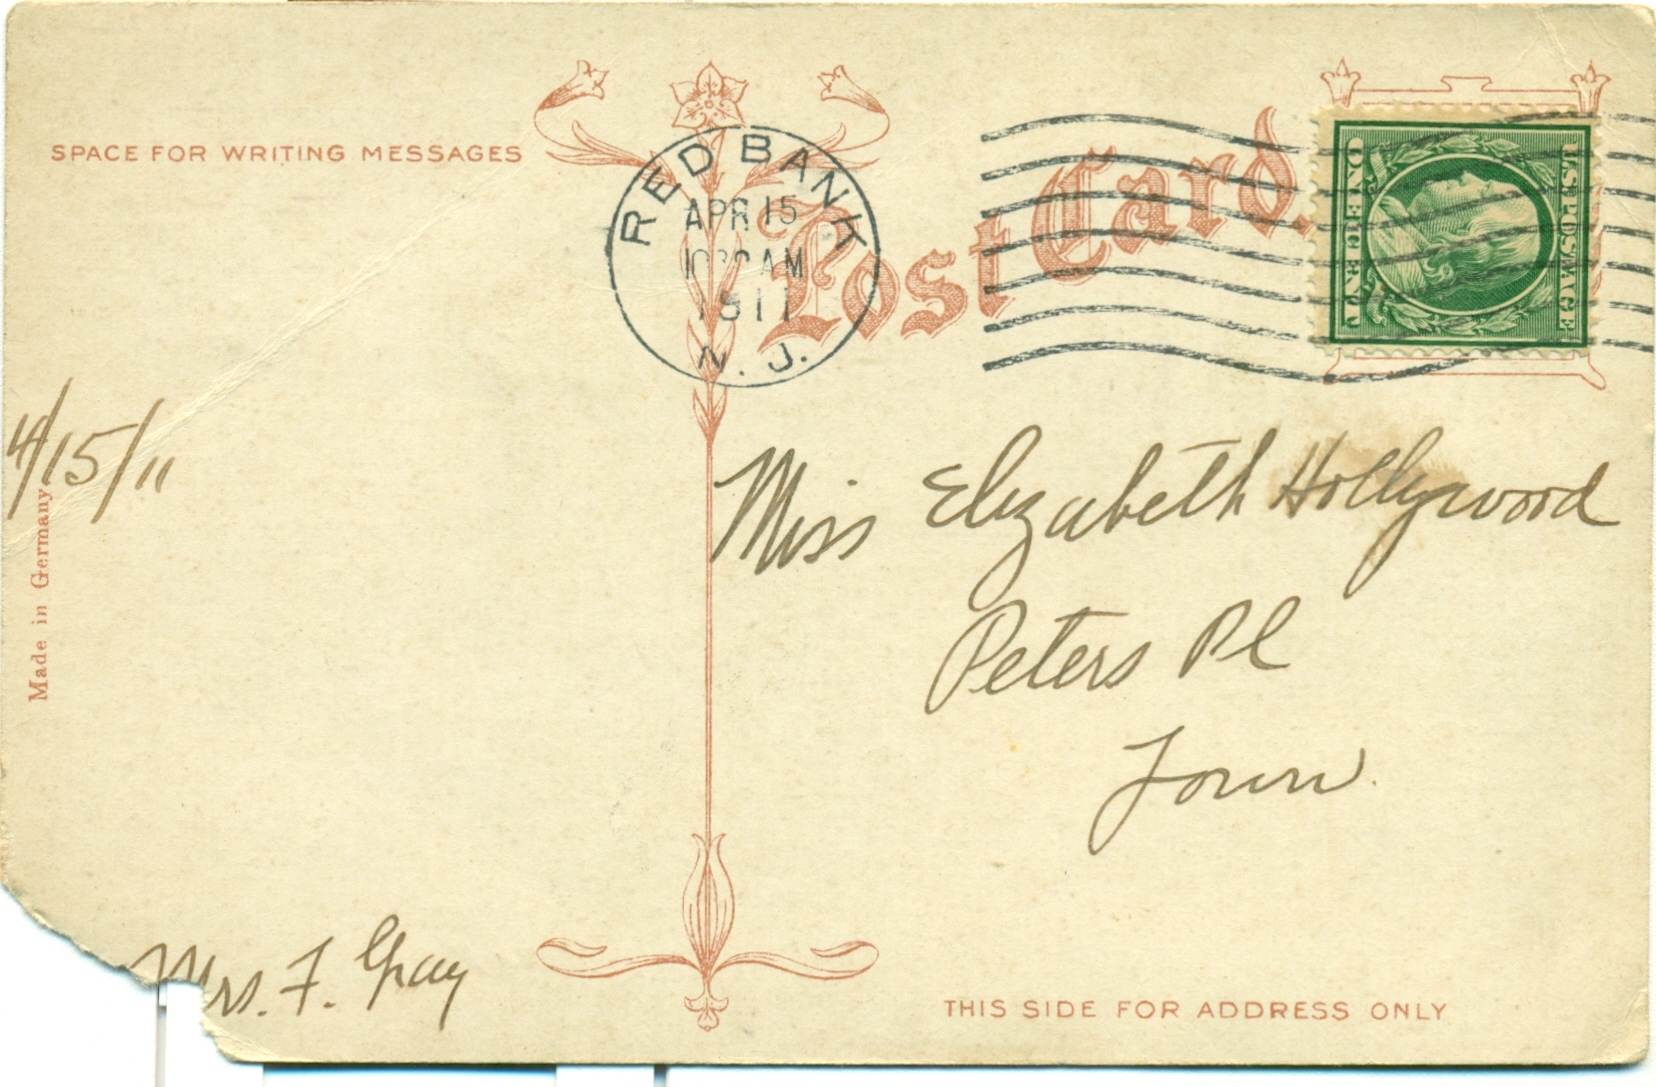 SPACE FOR WRITING MESSAGES
RED BANK
APR 15
AM
1911
N. J.
Post Card
U.S. POSTAGE
ONE CENT
4/15/11
Made in Germany
Miss Elizabeth Hollywood
Peters Pl
Town.
Mrs. F. Gray
THIS SIDE FOR ADDRESS ONLY